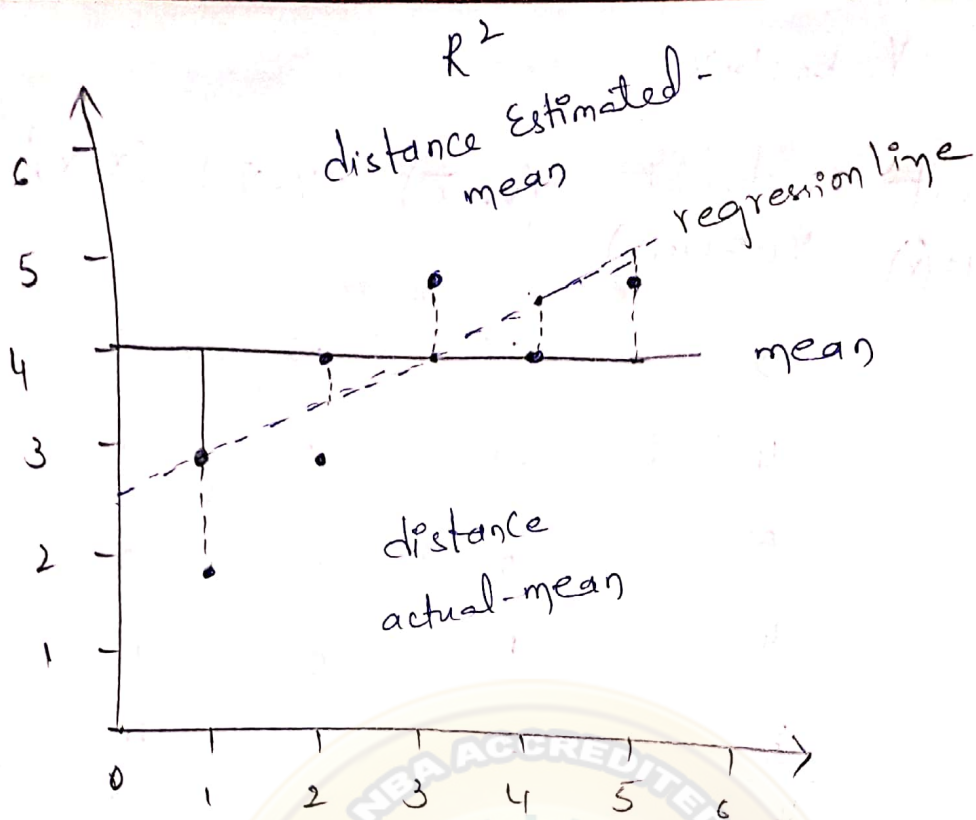 R²
distance Estimated-
mean
regression line
6
5
4
3
2
1
mean
distance
actual-mean
0 1 2 3 4 5 6
NBA ACCREDITED